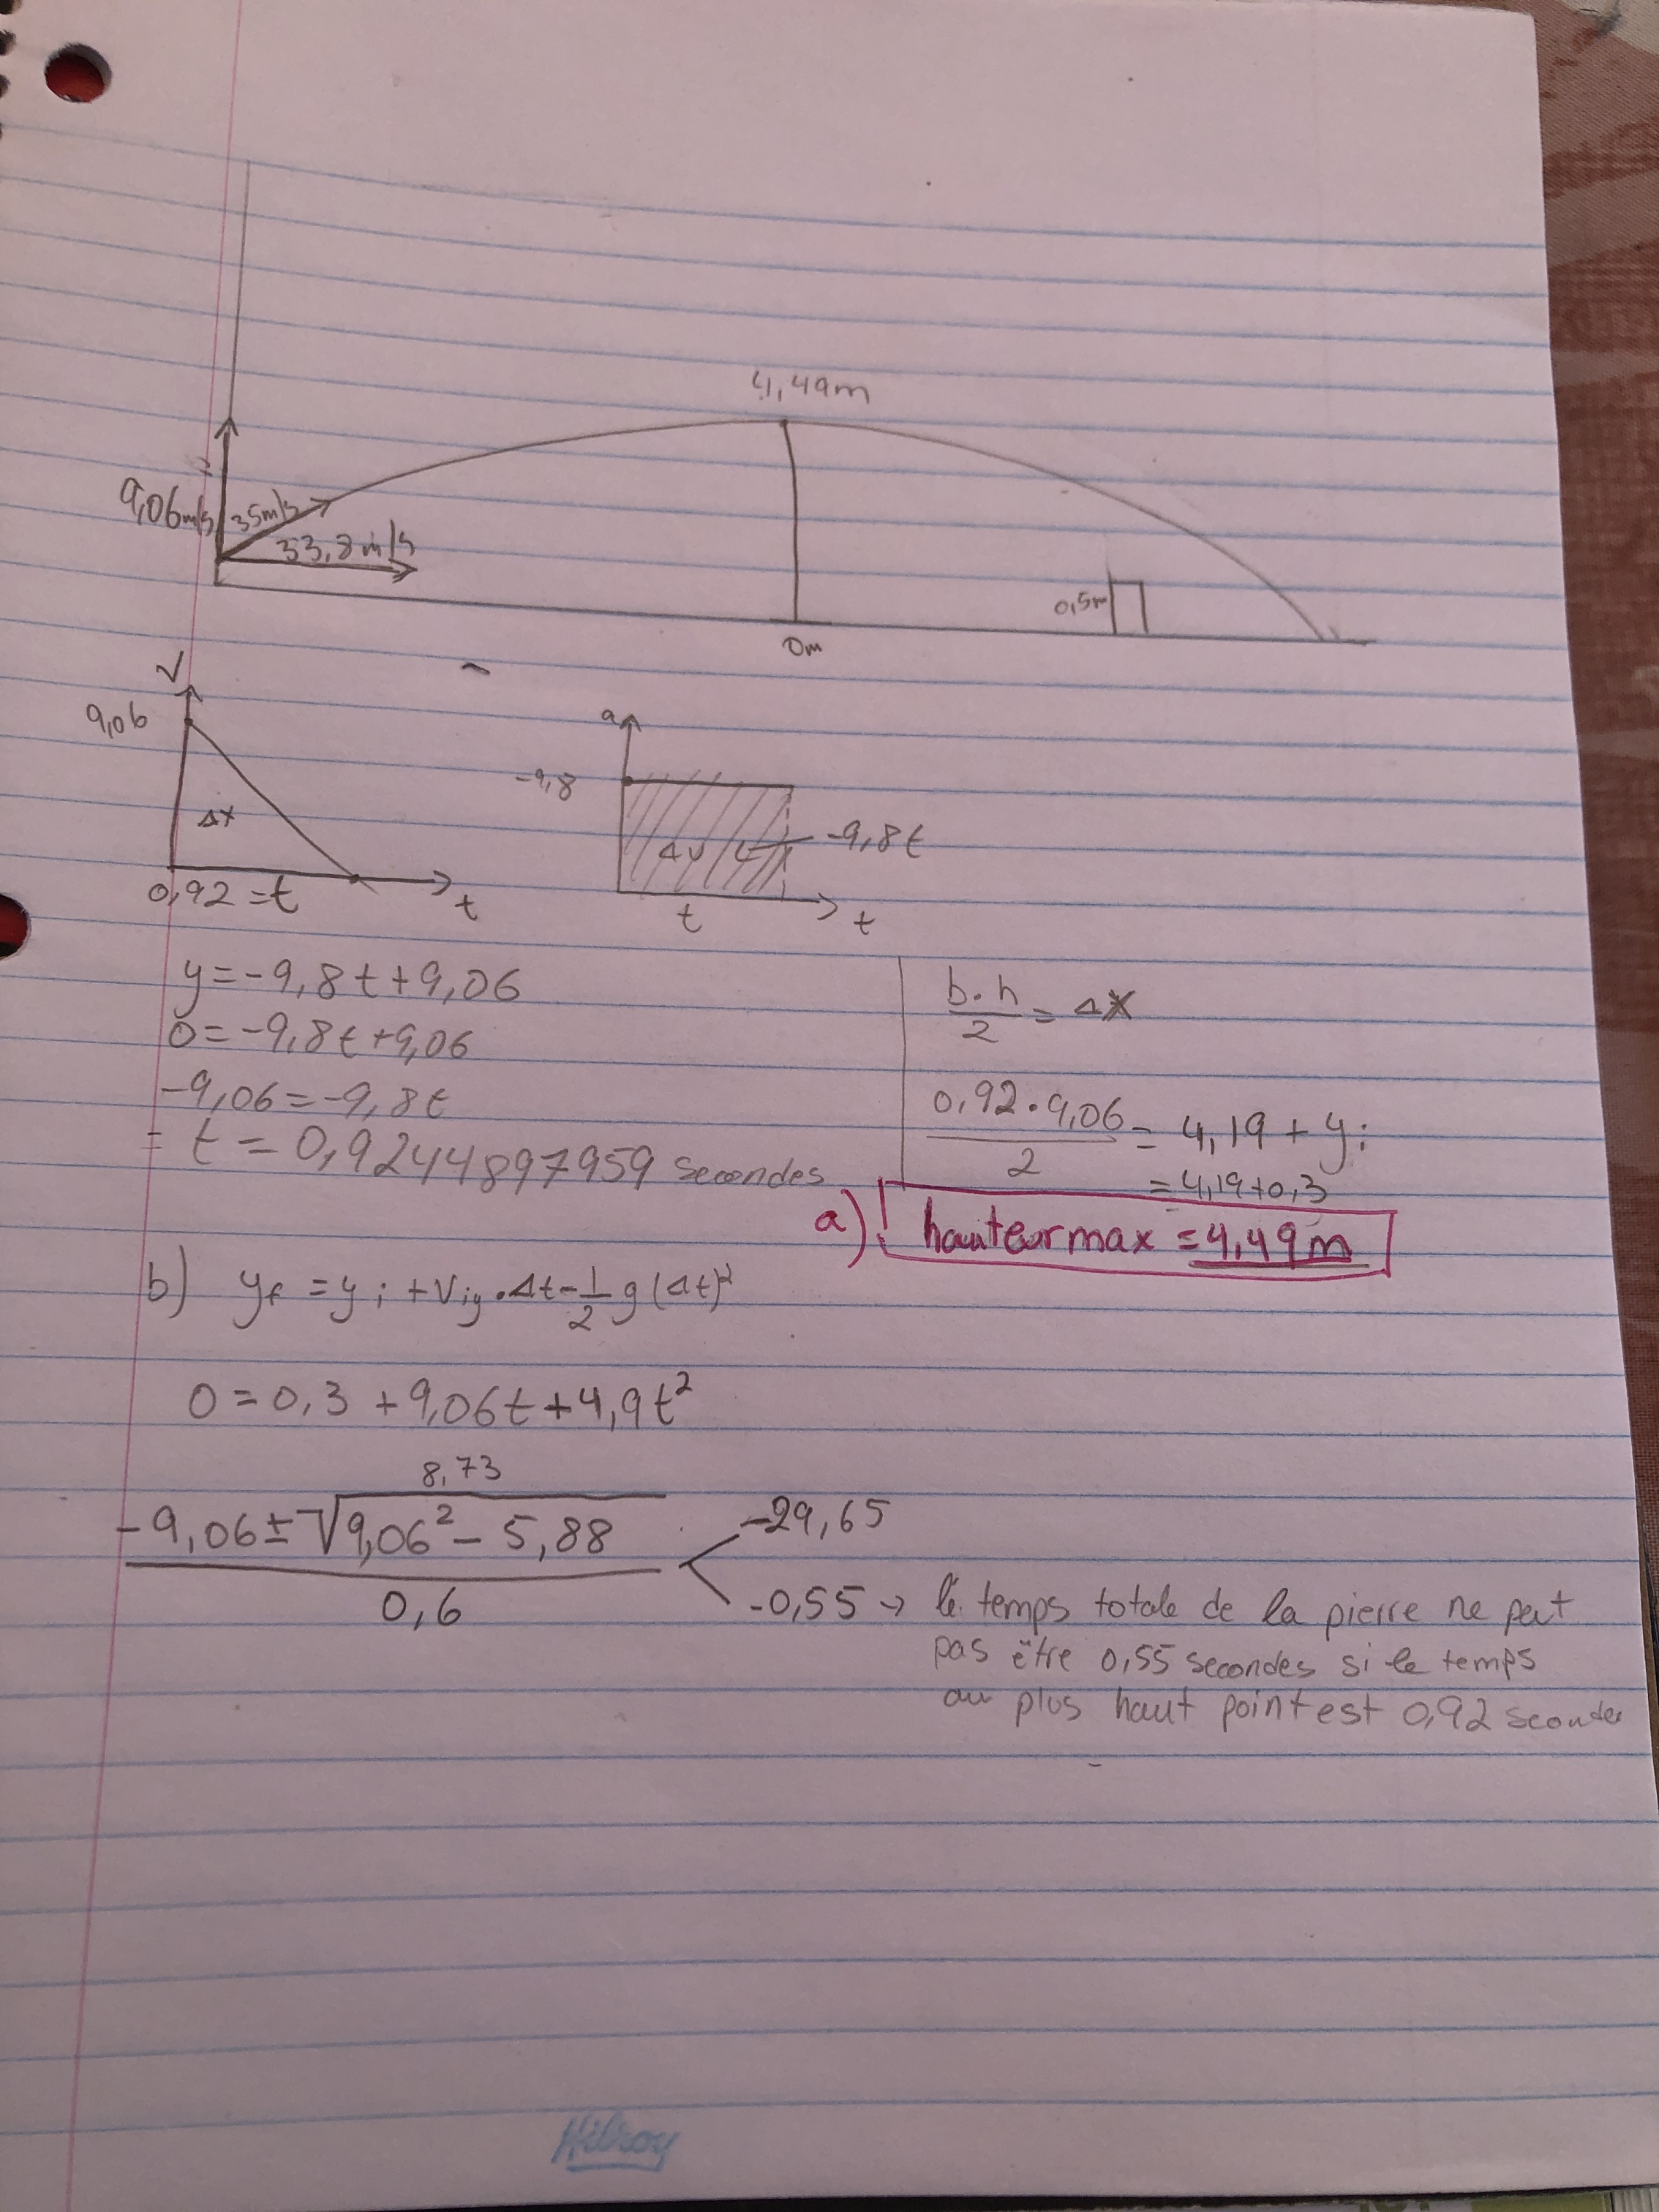 4,49m
9,06m/s
35m/s
33,8m/s
0,5m
0m
V
9,06
Δx
0,92=t
t
a
-9,8
Δv
-9,8t
t
t
y=-9,8t+9,06
0=-9,8t+9,06
-9,06=-9,8t
= t=0,92444897959 secondes
b·h/2 = Δx
0,92·9,06/2 = 4,19+yi
=4,19+0,3
a) hauteur max = 4,49m
b) yf = yi + Viy·Δt - 1/2 g(Δt)²
0=0,3 +9,06t+4,9t²
8,73
-9,06±√9,06²- 5,88
0,6
-29,65
-0,55 → le temps totale de la pierre ne peut
pas être 0,55 secondes si le temps
au plus haut point est 0,92 secondes
Hilroy